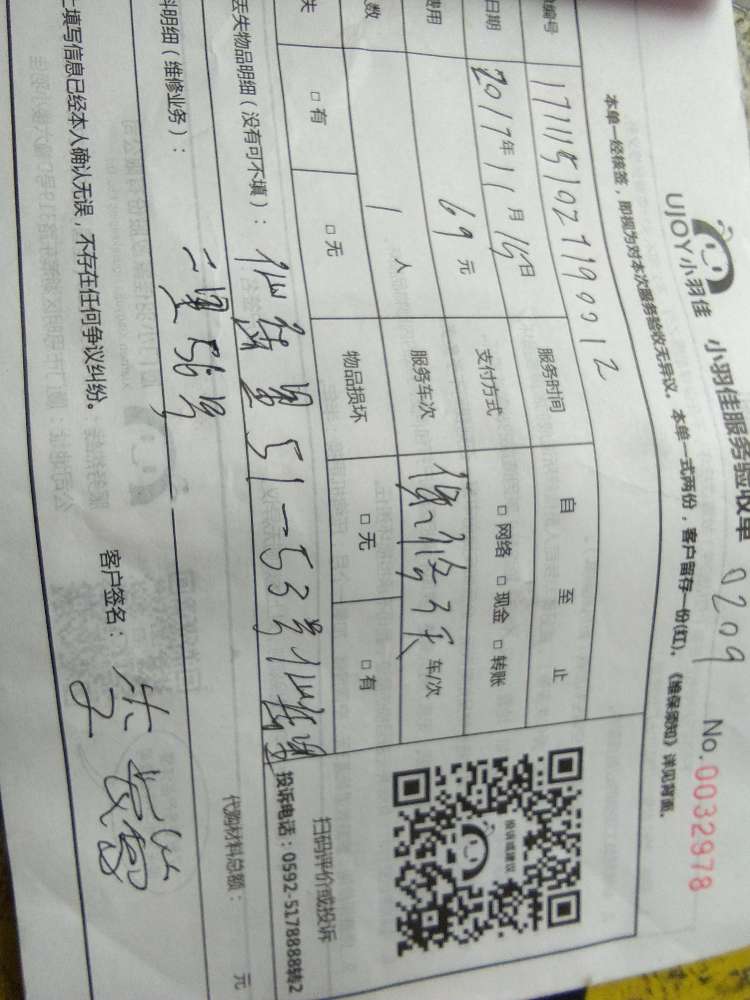 UJOY小羽佳 小羽佳服务验收单 0209 No.0032978
本单一经核签，即视为对本次服务验收无异议。本单一式两份，客户留存一份(红)。《维保须知》详见背面。
编号 1711151027190012 服务时间 自 至 止
日期 2017年11月15日 支付方式 □网络 □现金 □转账
费用 69元 服务车次 车/次
数 1人 物品损坏 □无 □有
失 □有 □无
丢失物品明细（没有可不填）： 51-53号
料明细（维修业务）： 56号
代购材料总额： 元
上填写信息已经本人确认无误，不存在任何争议纠纷。
客户签名：
投诉或建议
扫码评价或投诉
投诉电话：0592-5178888转2